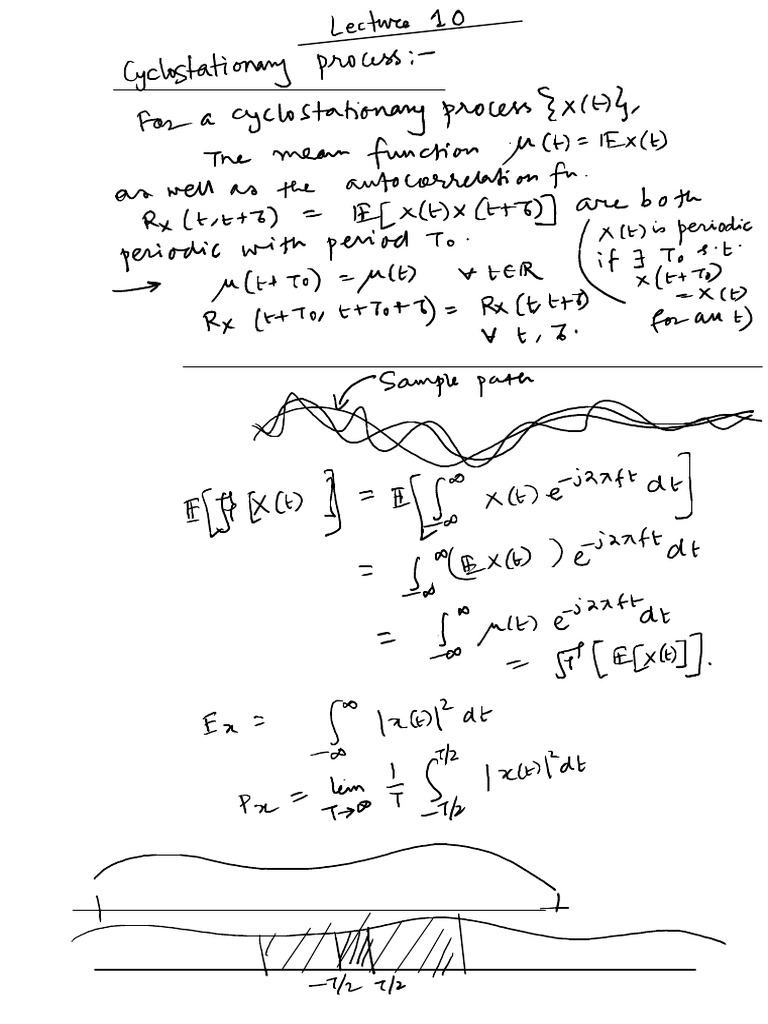 Lecture 10
Cyclostationary process:-
For a cyclostationary process {X(t)},
The mean function μ(t) = 𝔼X(t)
as well as the autocorrelation fn.
R_X (t, t+τ) = 𝔼[X(t)X(t+τ)] are both
periodic with period T₀.
(X(t) is periodic
if ∃ T₀ s.t.
X(t+T₀)
= X(t)
for all t)
→ μ(t+T₀) = μ(t) ∀ t∈ℝ
R_X (t+T₀, t+T₀+τ) = R_X (t, t+τ)
∀ t, τ.
Sample path
𝔼[ℱ[X(t)]] = 𝔼[∫_{-∞}^{∞} X(t) e^{-j2πft} dt]
= ∫_{-∞}^{∞} (𝔼X(t)) e^{-j2πft} dt
= ∫_{-∞}^{∞} μ(t) e^{-j2πft} dt
= ℱ[𝔼[X(t)]].
E_x = ∫_{-∞}^{∞} |x(t)|² dt
P_x = lim_{T→∞} 1/T ∫_{-T/2}^{T/2} |x(t)|² dt
-T/2 T/2